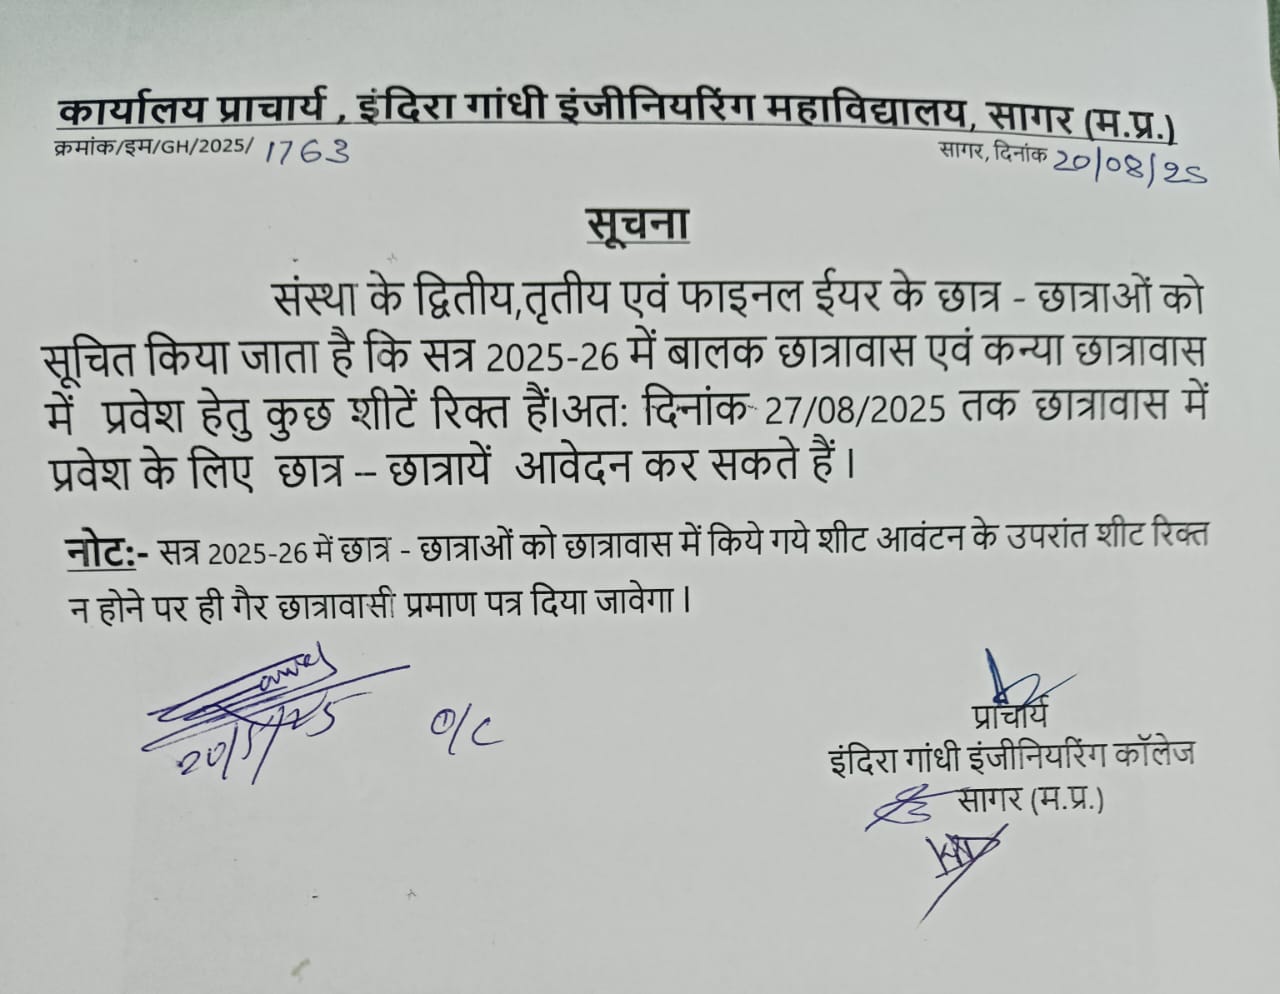 कार्यालय प्राचार्य , इंदिरा गांधी इंजीनियरिंग महाविद्यालय, सागर (म.प्र.)
क्रमांक/इम/GH/2025/ 1763 सागर, दिनांक 20/08/25
सूचना
संस्था के द्वितीय,तृतीय एवं फाइनल ईयर के छात्र - छात्राओं को
सूचित किया जाता है कि सत्र 2025-26 में बालक छात्रावास एवं कन्या छात्रावास
में प्रवेश हेतु कुछ शीटें रिक्त हैं।अत: दिनांक 27/08/2025 तक छात्रावास में
प्रवेश के लिए छात्र – छात्रायें आवेदन कर सकते हैं ।
नोट:- सत्र 2025-26 में छात्र - छात्राओं को छात्रावास में किये गये शीट आवंटन के उपरांत शीट रिक्त
न होने पर ही गैर छात्रावासी प्रमाण पत्र दिया जावेगा ।
O/C
प्राचार्य
इंदिरा गांधी इंजीनियरिंग कॉलेज
सागर (म.प्र.)